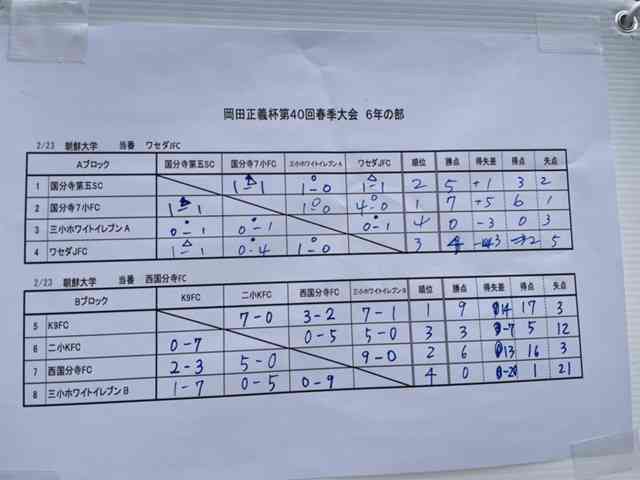 岡田正義杯第40回春季大会 6年の部
2/23 朝鮮大学 当番 ワセダJFC
Aブロック 国分寺第五SC 国分寺7小FC 三小ホワイトイレブンA ワセダJFC 順位 勝点 得失差 得点 失点
1 国分寺第五SC 1-1 1-0 1-1 2 5 +1 3 2
2 国分寺7小FC 1-1 1-0 4-0 1 7 +5 6 1
3 三小ホワイトイレブンA 0-1 0-1 0-1 4 0 -3 0 3
4 ワセダJFC 1-1 0-4 1-0 3 4 -3 2 5
2/23 朝鮮大学 当番 西国分寺FC
Bブロック K9FC 二小KFC 西国分寺FC 三小ホワイトイレブンB 順位 勝点 得失差 得点 失点
5 K9FC 7-0 3-2 7-1 1 9 14 17 3
6 二小KFC 0-7 0-5 5-0 3 3 -7 5 12
7 西国分寺FC 2-3 5-0 9-0 2 6 13 16 3
8 三小ホワイトイレブンB 1-7 0-5 0-9 4 0 -20 1 21